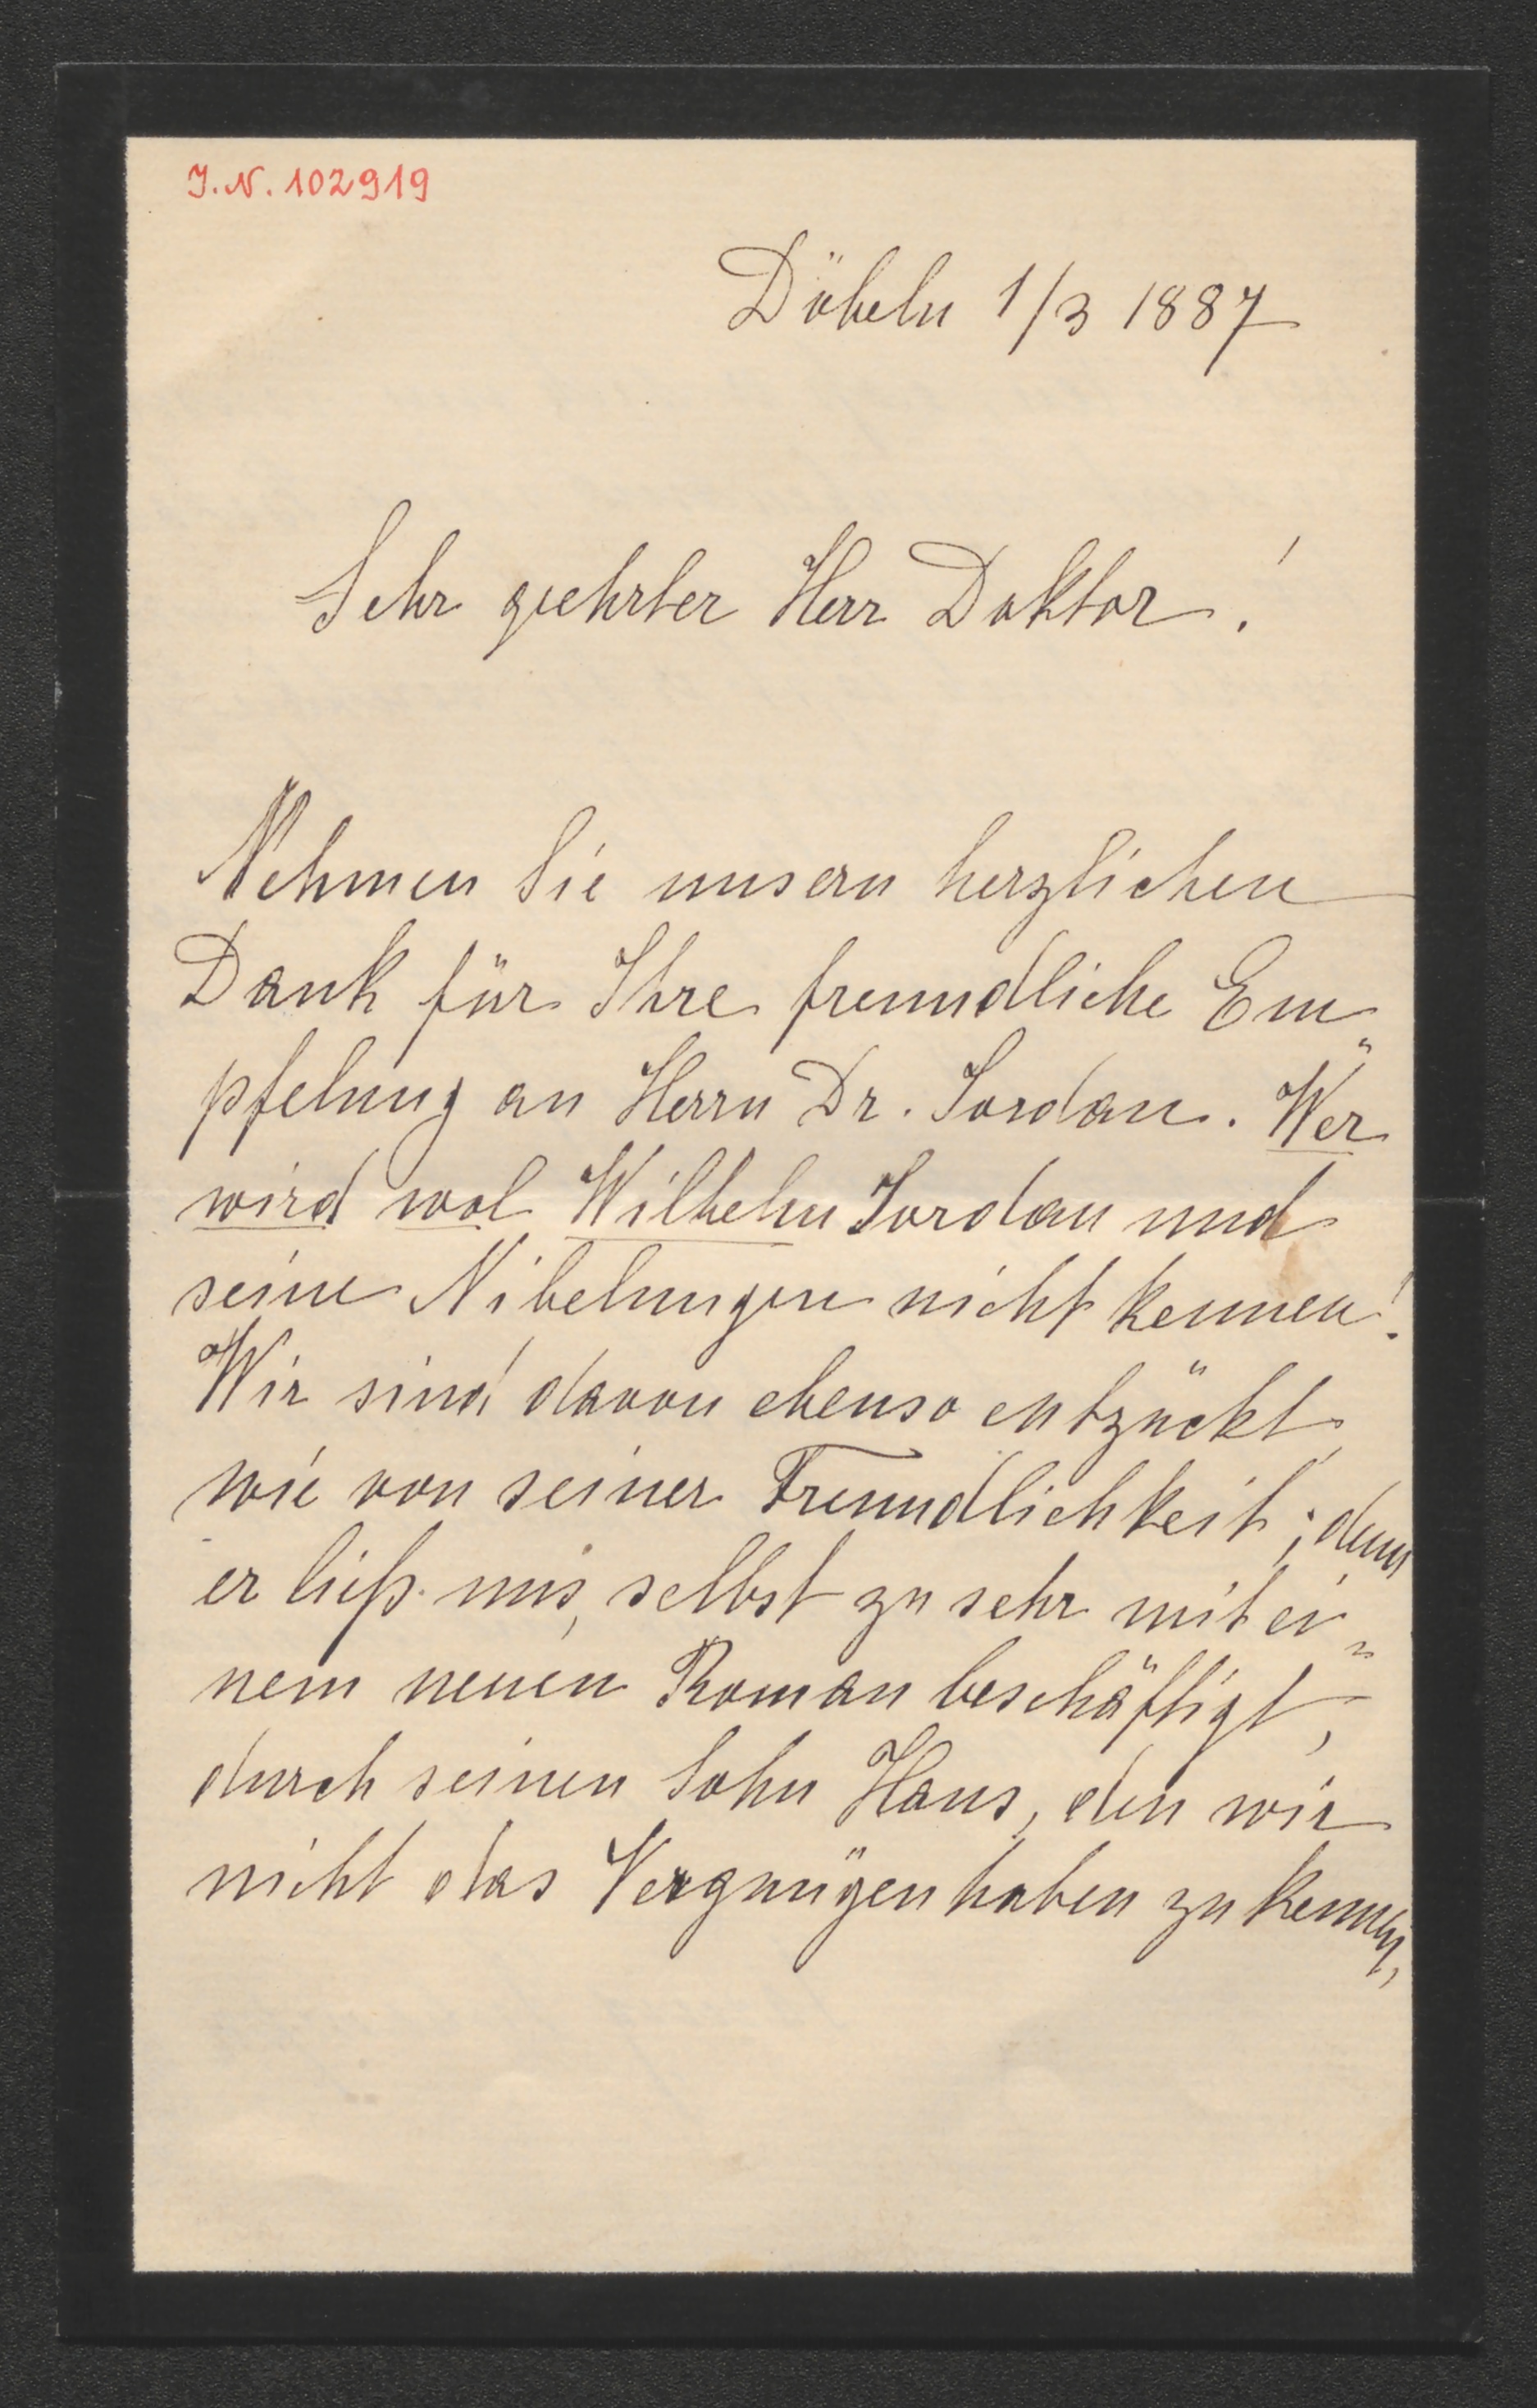 J.N. 102919
Döbeln 1/3 1887
Sehr geehrter Herr Doktor!
Nehmen Sie unsern herzlichen
Dank für Ihre freundliche Em„
pfelung an Herrn Dr. Jordan. Wer
wird wol Wilhelm Jordan und
seine Nibelungen nicht kennen!
Wir sind davon ebenso entzückt,
wie von seiner Freundlichkeit; denn
er ließ uns, selbst zu sehr mit ei„
nem neuen Roman beschäftigt,
durch seinen Sohn Hans, den wir
nicht das Vergnügen haben zu kennen,